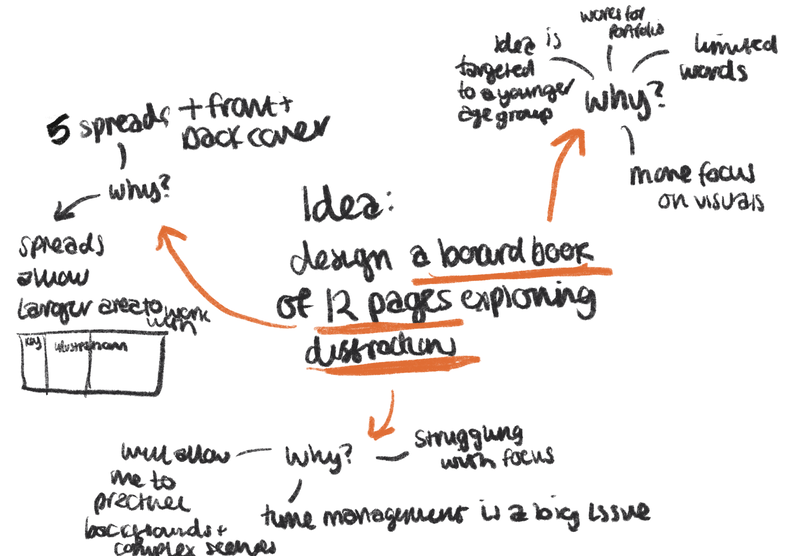 Idea:
design a board book
of 12 pages exploring
distraction
5 spreads + front +
back cover
why?
spreads
allow
larger area to work
with
key
illustration
why?
Idea is
targeted
to a younger
age group
works for
portfolio
limited
words
more focus
on visuals
why?
will allow
me to
practice
backgrounds +
complex scenes
struggling
with focus
time management is a big issue